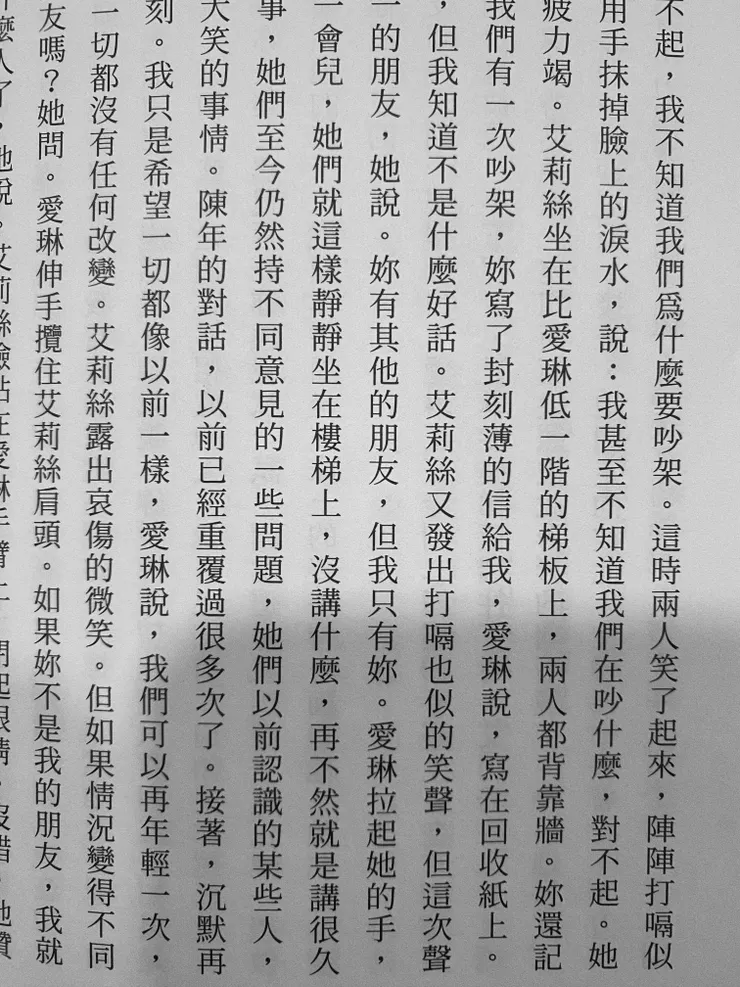 不起，我不知道我們爲什麼要吵架。這時兩人笑了起來，陣陣打嗝似
用手抹掉臉上的淚水，說：我甚至不知道我們在吵什麼，對不起。她
疲力竭。艾莉絲坐在比愛琳低一階的梯板上，兩人都背靠牆。妳還記
我們有一次吵架，妳寫了封刻薄的信給我，愛琳說，寫在回收紙上。
，但我知道不是什麼好話。艾莉絲又發出打嗝也似的笑聲，但這次聲
一的朋友，她說。妳有其他的朋友，但我只有妳。愛琳拉起她的手，
一會兒，她們就這樣靜靜坐在樓梯上，沒講什麼，再不然就是講很久
事，她們至今仍然持不同意見的一些問題，她們以前認識的某些人，
大笑的事情。陳年的對話，以前已經重覆過很多次了。接著，沉默再
刻。我只是希望一切都像以前一樣，愛琳說，我們可以再年輕一次，
一切都沒有任何改變。艾莉絲露出哀傷的微笑。但如果情況變得不同
友嗎？她問。愛琳伸手攬住艾莉絲肩頭。如果妳不是我的朋友，我就
麼人了，她說。艾莉絲臉貼在愛琳手臂上，閉起眼睛。沒錯，她